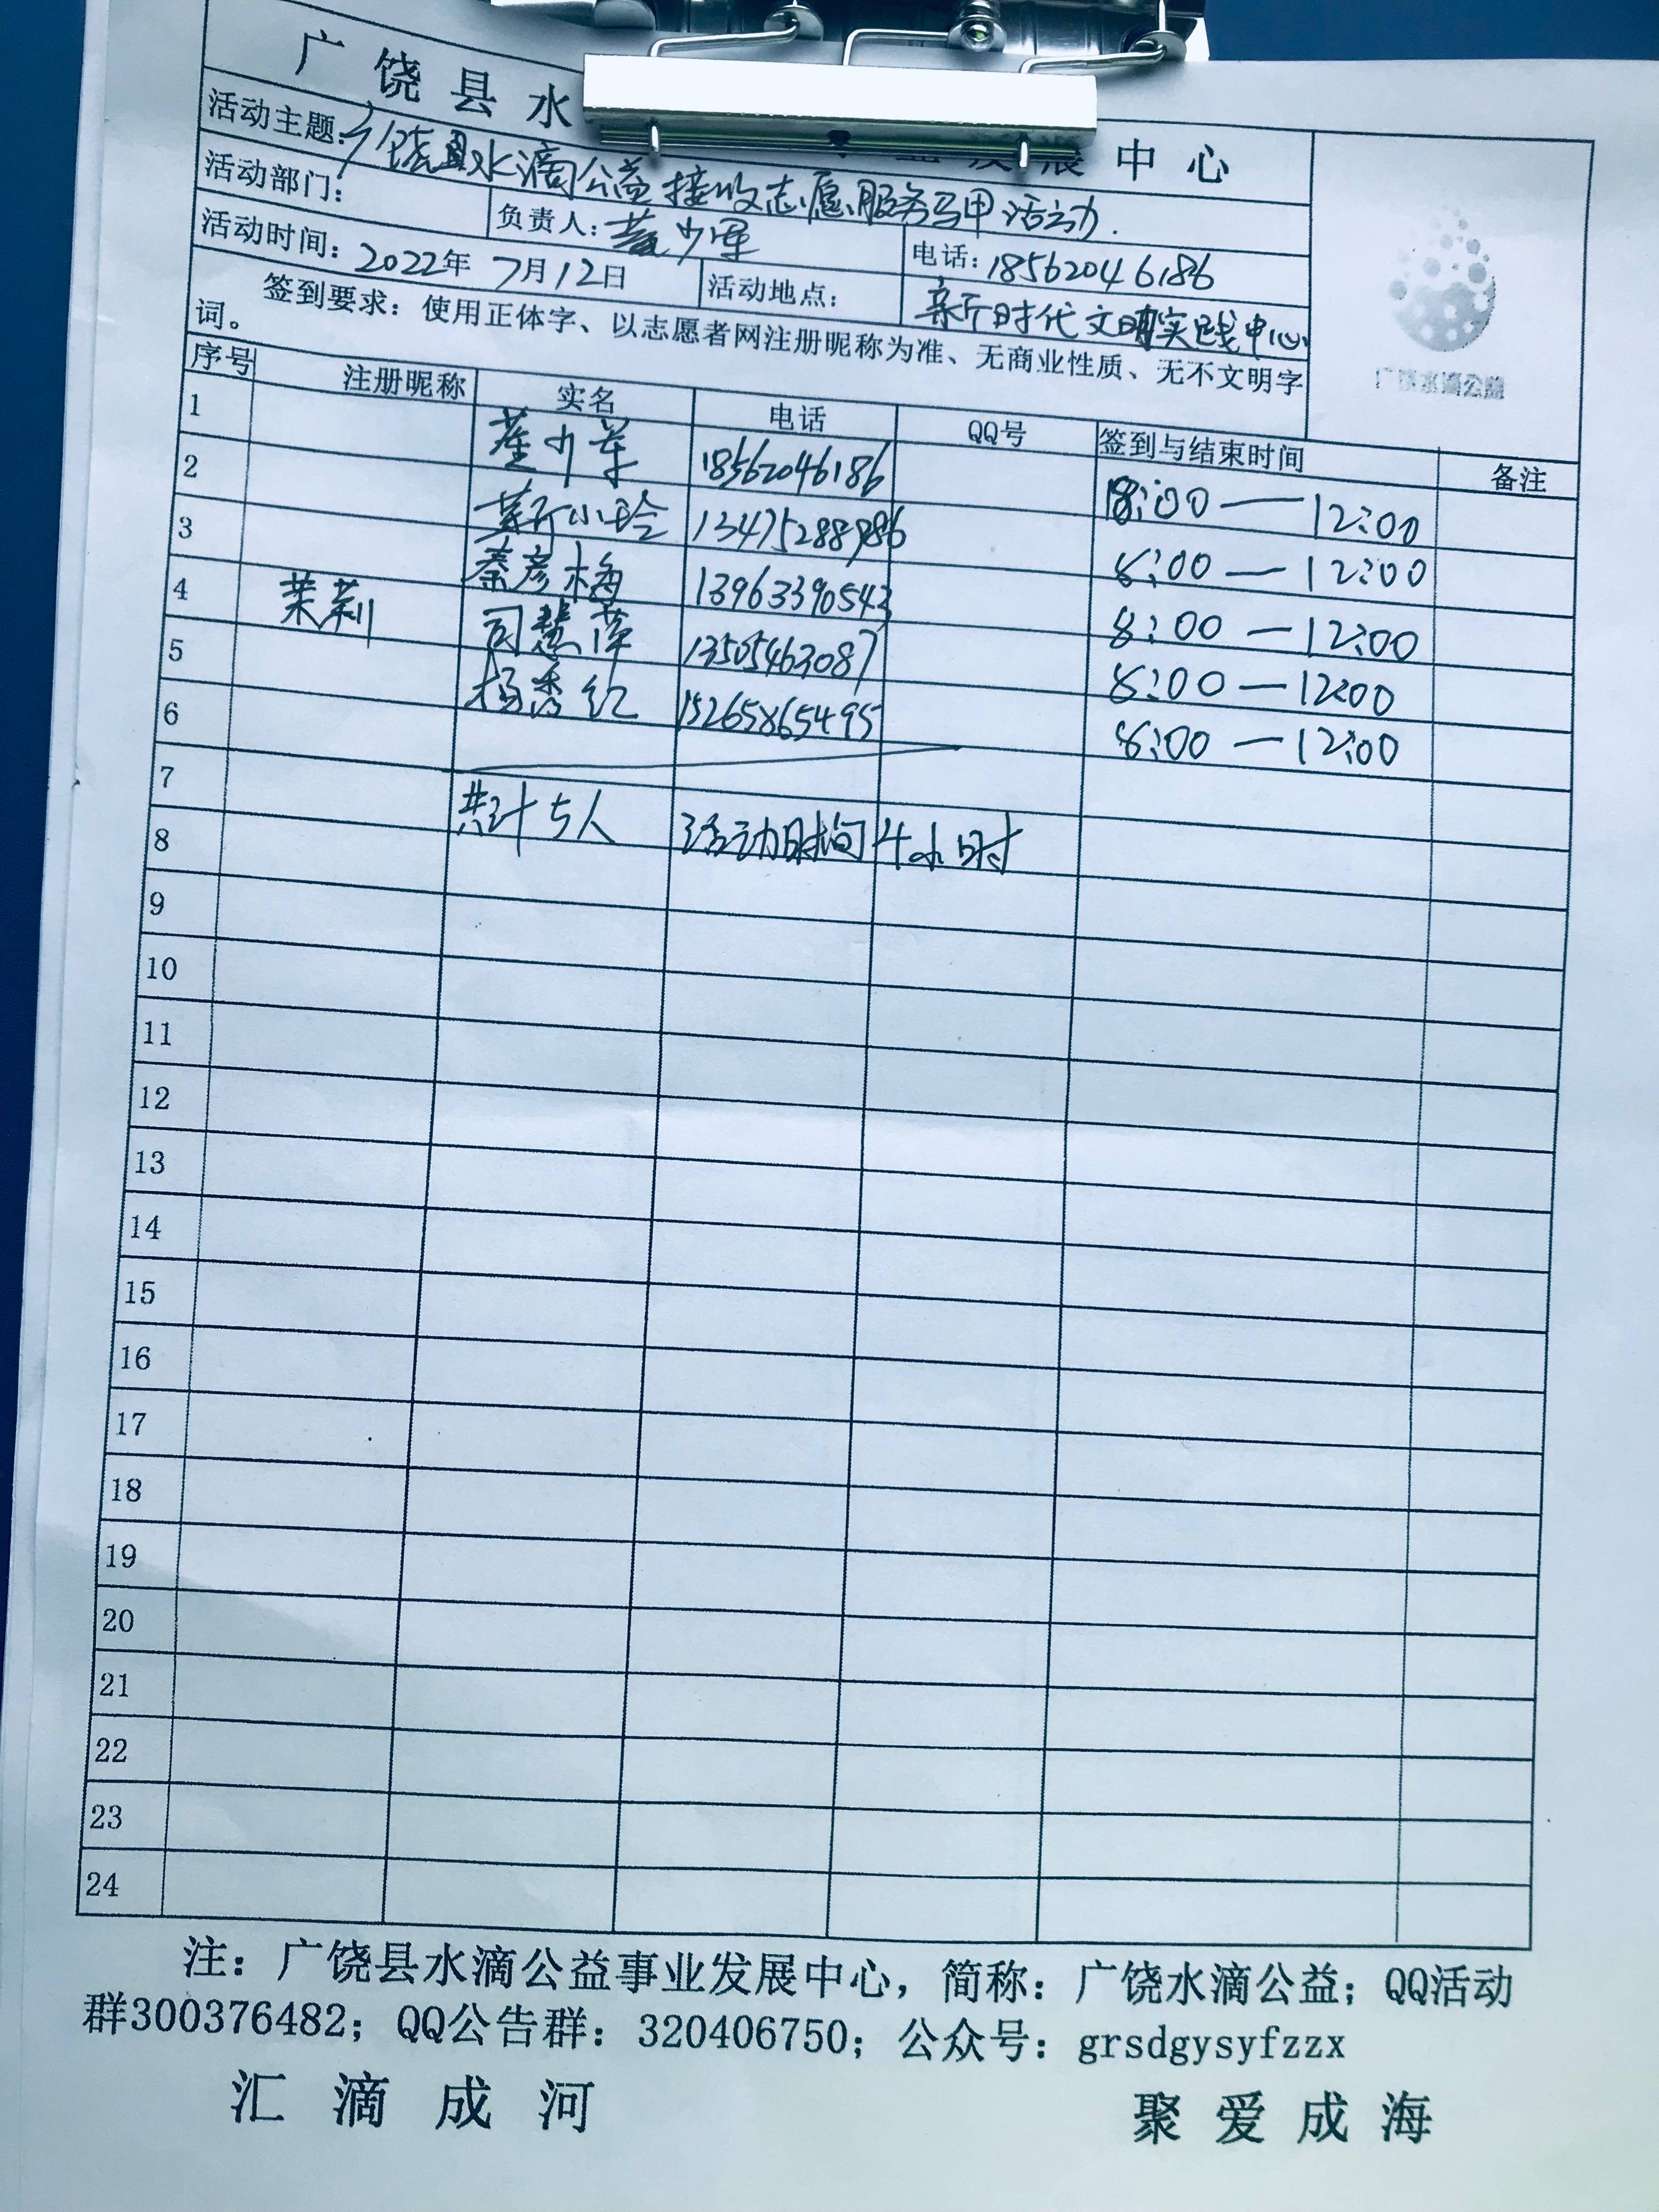 广饶县水 益发展中心
活动主题:广饶县水滴公益接收志愿服务马甲活动.
活动部门: 负责人: 电话:18562046186
活动时间:2022年7月12日 活动地点: 新时代文明实践中心
签到要求:使用正体字、以志愿者网注册昵称为准、无商业性质、无不文明字
词。
广饶水滴公益
序号 注册昵称 实名 电话 QQ号 签到与结束时间 备注
1 18562046186 8:00—12:00
2 靳小玲 13475288986 8:00—12:00
3 秦彦梅 13963390543 8:00—12:00
4 茉莉 司慧萍 13505463087 8:00—12:00
5 杨秀红 15265865495 8:00—12:00
6
7 共计5人 活动时间4小时
8
9
10
11
12
13
14
15
16
17
18
19
20
21
22
23
24
注:广饶县水滴公益事业发展中心,简称:广饶水滴公益;QQ活动
群300376482;QQ公告群:320406750;公众号:grsdgysyfzzx
汇滴成河 聚爱成海